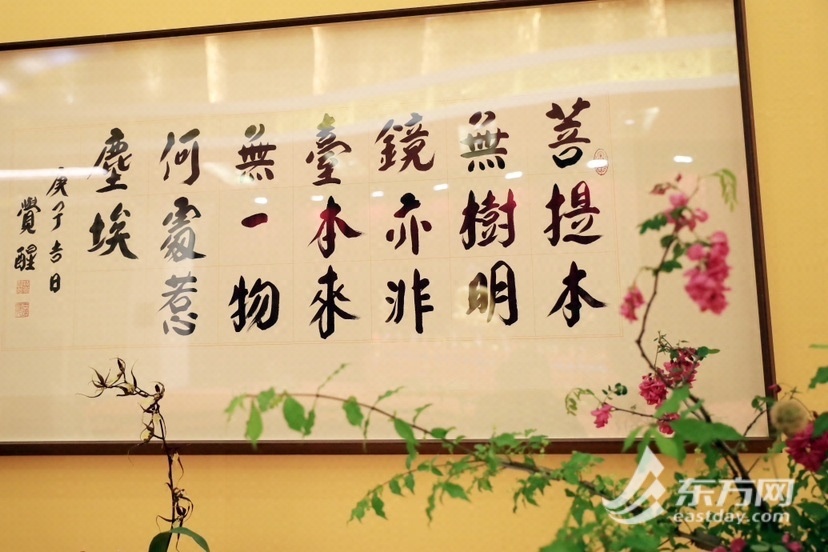 菩提本
無樹明
鏡亦非
臺本來
無一物
何處惹
塵埃
庚子吉日
覺醒
东方网
eastday.com